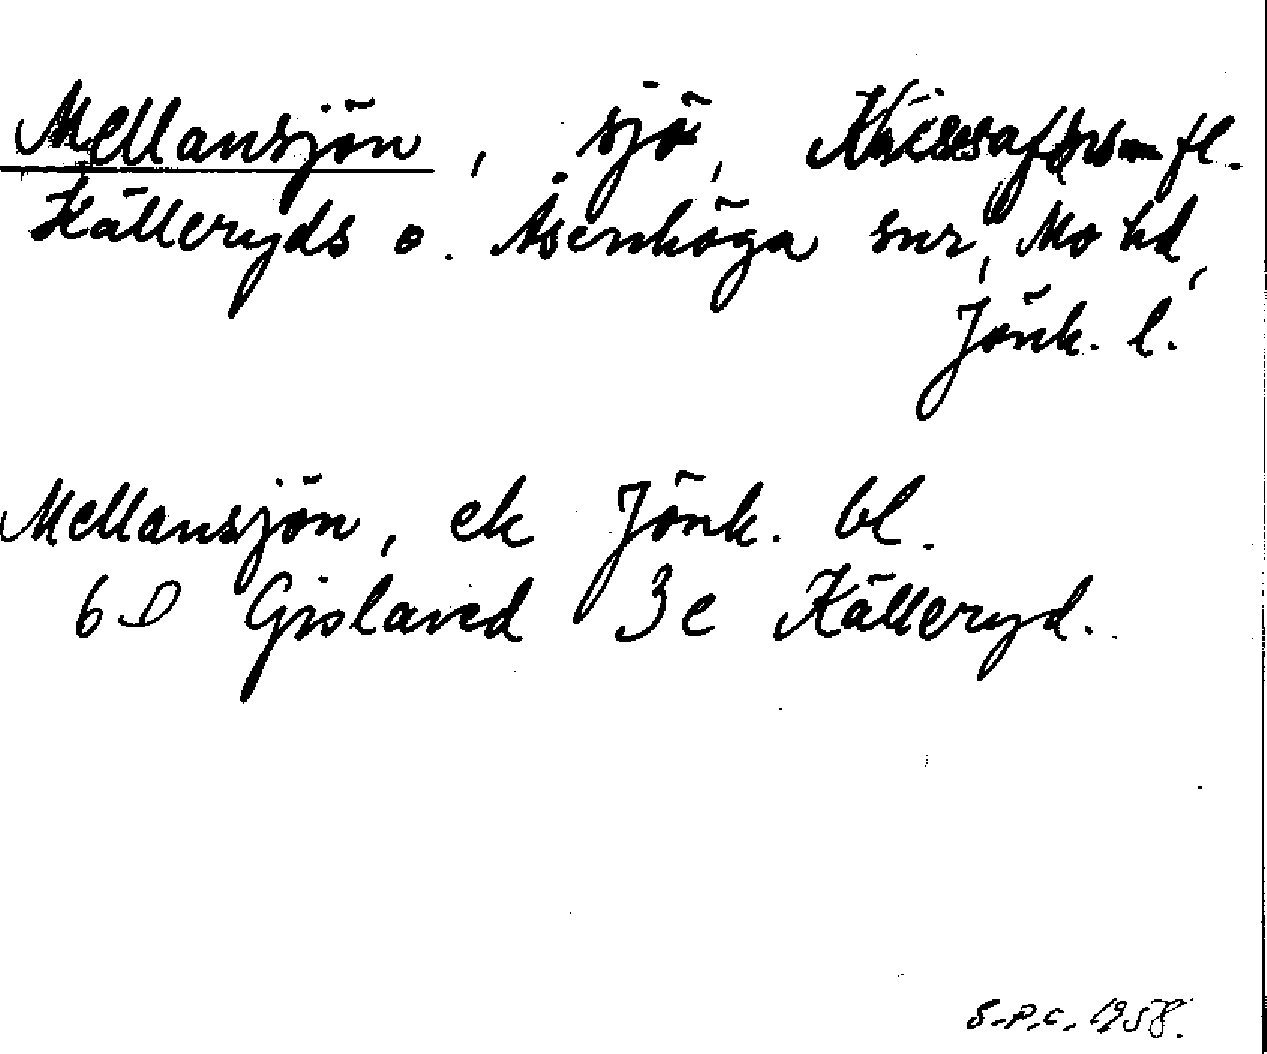 Mellansjön, sjö, Nissafors fl.
Källeryds o. Åsenhöga snr, Mo hd,
Jönk. l.
Mellansjön, ek Jönk. bl.
6 D Gislaved 3 e Källeryd.
S.P.C. 1958.